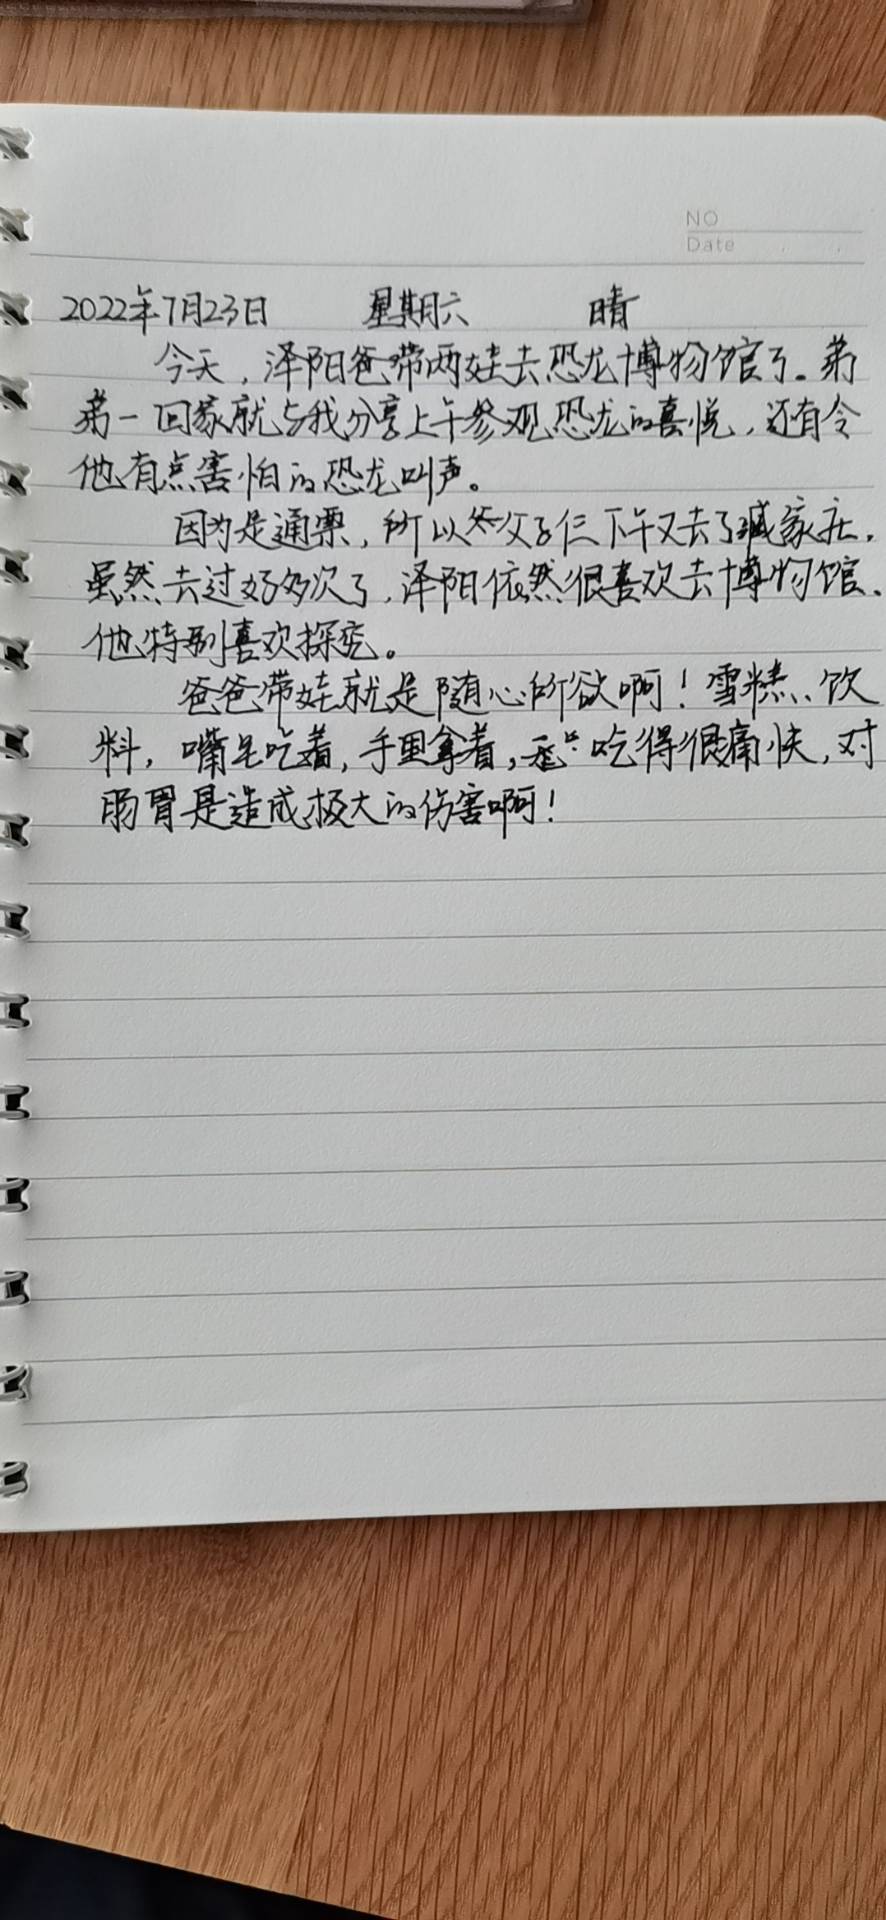 NO
Date
2022年7月23日 星期六 晴
今天，泽阳爸带两娃去恐龙博物馆了。弟
弟一回家就与我分享上午参观恐龙的喜悦，还有令
他有点害怕的恐龙叫声。
因为是通票，所以父子仨下午又去了臧家庄，
虽然去过好多次了，泽阳依然很喜欢去博物馆、
他特别喜欢探究。
爸爸带娃就是随心所欲啊！雪糕、饮
料，嘴里吃着，手里拿着，吃得很痛快，对
肠胃是造成极大的伤害啊！